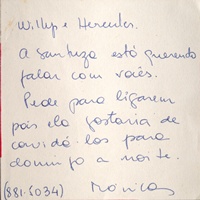 Willy e Hercules.
A Santuza está querendo
falar com vocês.
Pede para ligarem
pois ela gostaria de
convidá-los para
domingo a noite.
(881.5034) Mônica